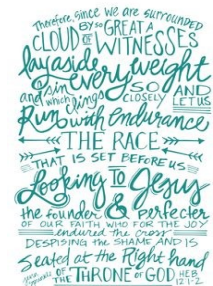 Therefore, since we are surrounded
by so GREAT A
CLOUD OF WITNESSES
lay aside every weight
and sin which clings SO CLOSELY AND LET US
Run with Endurance
THE RACE
THAT IS SET BEFORE US
Looking TO Jesus
the founder & perfecter
OF OUR FAITH WHO FOR THE JOY
endured the cross
DESPISING THE SHAME AND IS
Seated at the Right hand
OF THE THRONE OF GOD HEB. 12:1-2